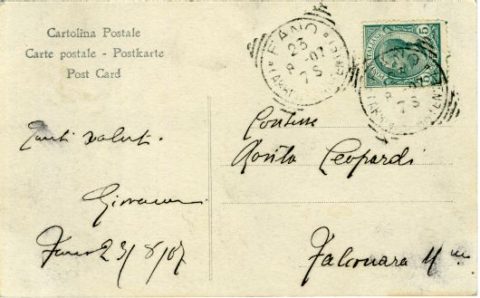 Cartolina Postale
Carte postale - Postkarte
Post Card
FANO
7 S
Tanti saluti.
Giovanni
Fano 23/8/07
Contessa
Leopardi
Falconara